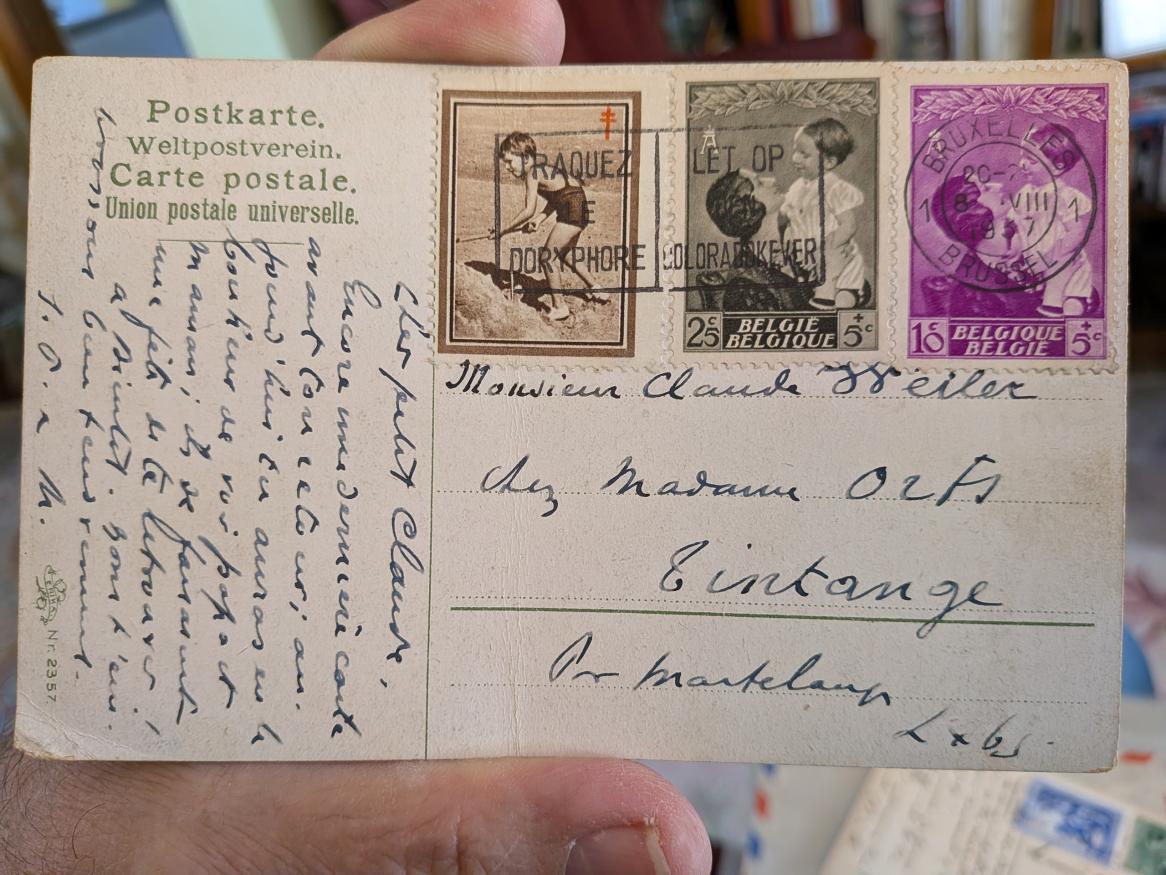 Postkarte.
Weltpostverein.
Carte postale.
Union postale universelle.
TRAQUEZ
LE
DORYPHORE
LET OP
COLORADOKEVER
BRUXELLES
20-
1 8 VIII 1
1937
BRUSSEL
2c5 BELGIË + 5c
BELGIQUE
10c BELGIQUE + 5c
BELGIË
Monsieur Claude Weiler
chez Madame Orts
Tintange
Par Martelange
Luxbg.
Cher petit Claude,
Encore une dernière carte
avant ton retour; au-
jourd'hui tu auras eu le
bonheur de voir papa et
maman; ils se faisaient
une fête de te retrouver;
à bientôt.
bien tendrement.
T. O. a M.
Nr. 2357